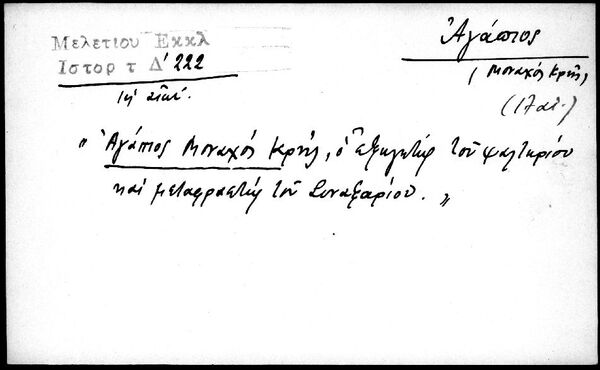 Μελετιου Εκκλ
Ιστορ τ Δ' 222
Ἀγάπιος
(Μοναχός Κρής,
ιη αἰών.
(17 αἰ.)
„ Ἀγάπιος Μοναχός Κρής, ὁ ἐξηγητής τοῦ ψαλτηρίου
καί μεταφραστής τοῦ Συναξαρίου. „